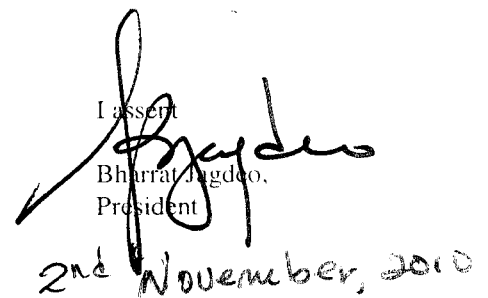 I assent
Bharrat Jagdeo,
President
2nd November, 2010